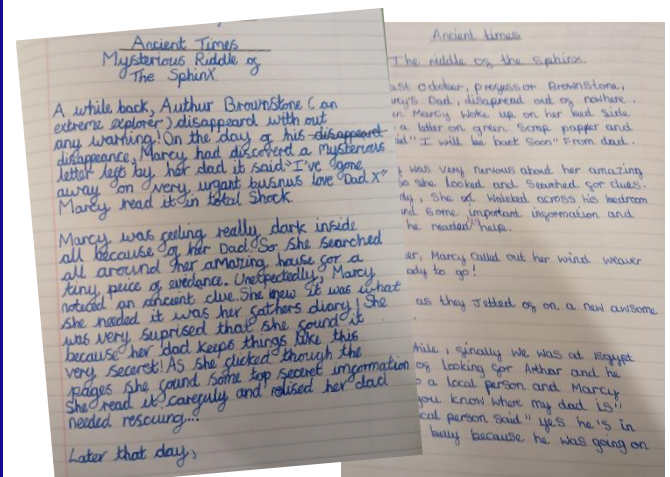 Ancient Times
Mysterious Riddle of
The SphinX
A while back, Authur BrownStone (an
extreme explorer) disappeard with out
any warning! On the day of his disappeard
disappearance, Marcy had discoverd a Mysterious
letter left by her dad it said "I've gone
away on very urgant busnus love Dad X"
Marcy read it in total Shock.
Marcy was feeling really dark inside
all because of her Dad. So She searched
all around her amazing house for a
tiny peice of evedance. Unexpectedly, Marcy
noteced an ancient clue. She knew it was what
she needed it was her fathers diary! She
was very suprised that she found it
because her dad keeps things like this
very seceret! As she flicked though the
pages she found Some top secret information
She read it carefuly and relised her dad
needed rescuing...
Later that day,
Ancient times
The riddle of the sphinx
ast october, professor BrownStone,
Dad, disapread out of nowhere.
Marcy woke up on her bed side
a letter on green Scrap papper and
"I will be back Soon" From dad.
was very nervous about her amazing
so she looked and Searched for clues.
She walked across his bedroom
some important information and
he needed help.
Marcy called out her wind weaver
ady to go!
as they Jetted of on a new awsome
finally we was at Egypt
of looking for Arthor and he
a local person and Marcy
you know where my dad is"
cal person said "yes he's in
belly because he was going on